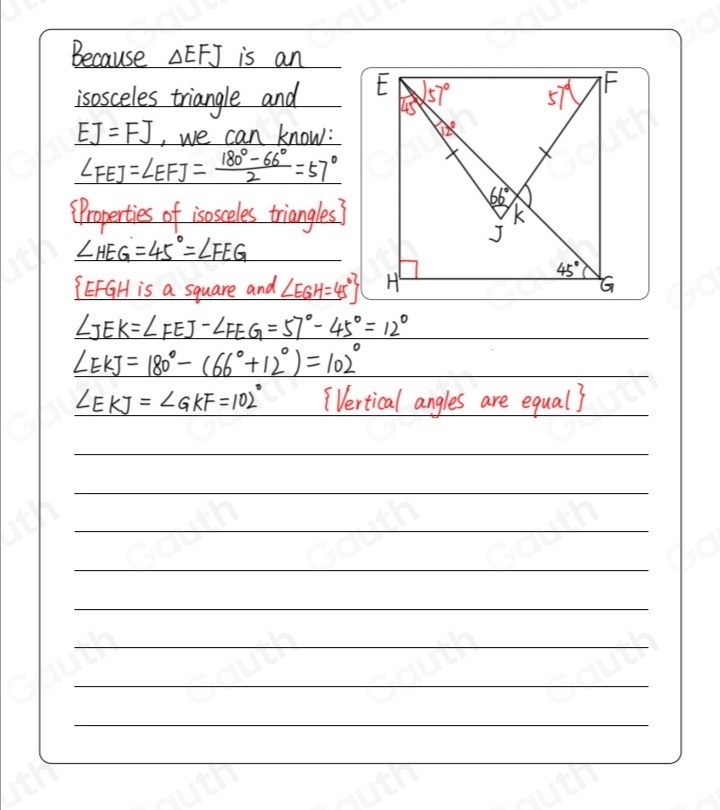 Because △EFJ is an
isosceles triangle and
EJ = FJ, we can know:
∠FEJ=∠EFJ= (180°-66°)/2 =57°
{Properties of isosceles triangles}
∠HEG=45°=∠FEG
{EFGH is a square and ∠EGH=45°}
∠JEK=∠FEJ-∠FEG=57°-45°=12°
∠EKJ=180°-(66°+12°)=102°
∠EKJ=∠GKF=102° {Vertical angles are equal}
E
F
45°
57°
57°
12°
66°
K
J
45°
H
G
Gauth